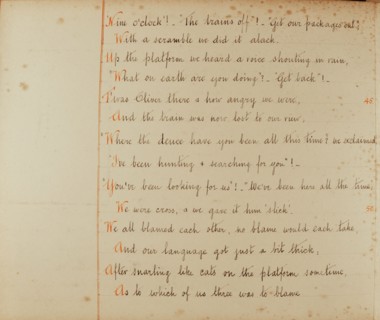 Nine o'clock"! - "The trains off"! - "Get our packages out",
With a scramble we did it alack.
Up the platform we heard a voice shouting in vain,
"What on earth are you doing"! - "Get back"! -
'Twas Oliver there & how angry we were,
And the train was now lost to our view.
"Where the deuce have you been all this time? we exclaimed
"I've been hunting & searching for you"! -
"You've been looking for us"! - "We've been here all the time,
We were cross, & we gave it him 'slick'.
We all blamed each other, no blame would each take,
And our language got just a bit thick,
After snarling like cats on the platform sometime,
As to which of us three was to blame